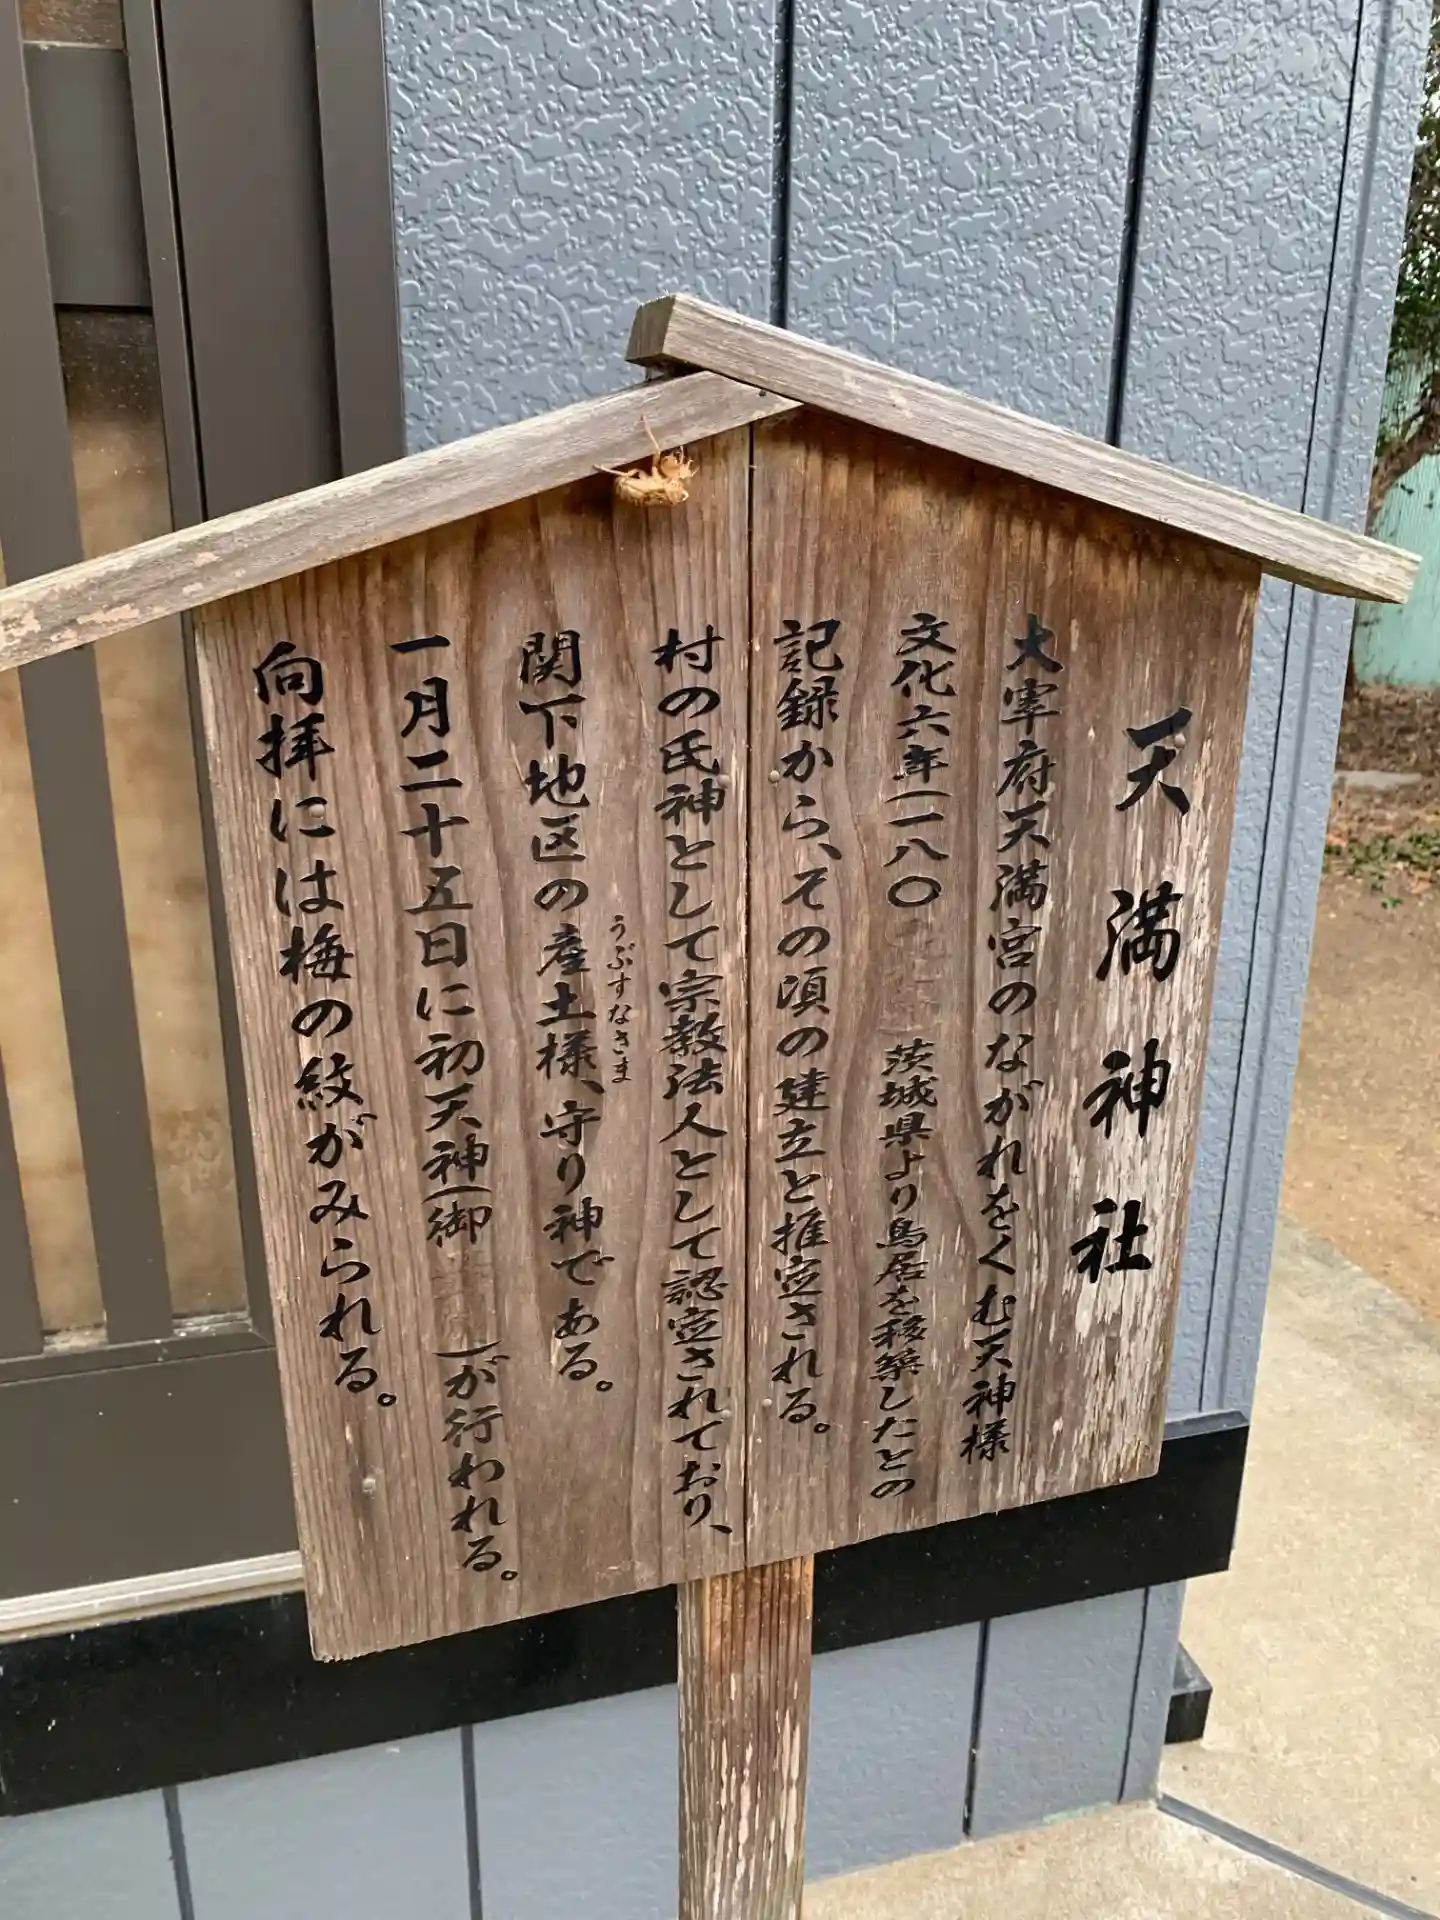 天満神社
大宰府天満宮のながれをくむ天神様
文化六年(一八〇 茨城県より鳥居を移築したとの
記録から、その頃の建立と推定される。
村の氏神として宗教法人として認定されており、
関下地区の産土様、守り神である。
うぶすなさま
一月二十五日に初天神(御 )が行われる。
向拝には梅の紋がみられる。